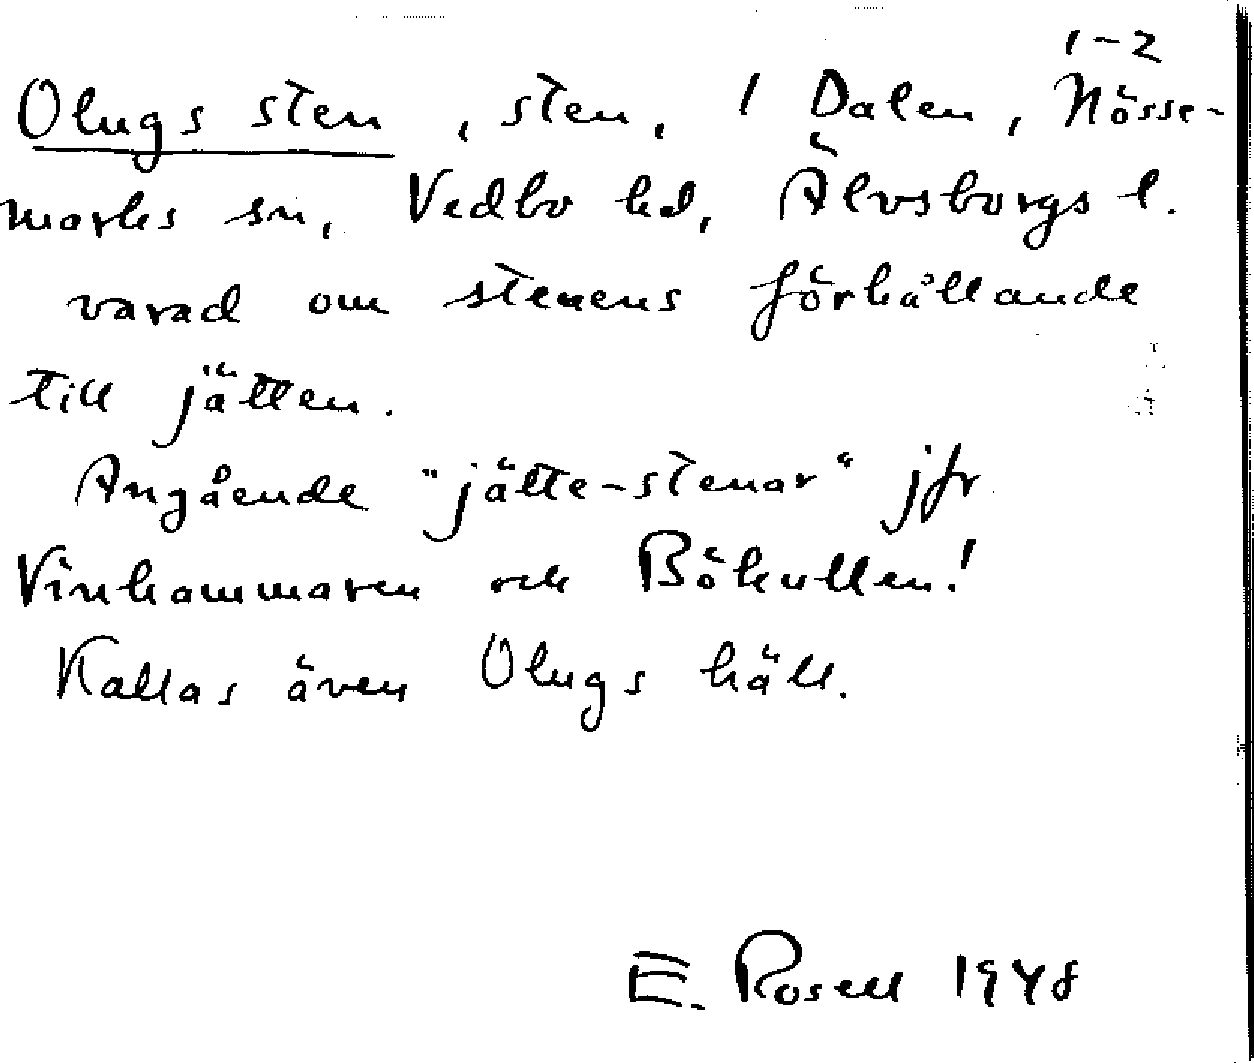 1-2
Olugs sten, sten, 1 Dalen, Nösse-
marks sn, Vedbo hd, Älvsborgs l.
varad om stenens förhållande
till jätten.
Angående "jätte-stenar" jfr
Vinkammaren och Bökullen!
Kallas även Olugs häll.
E. Rosell 1948